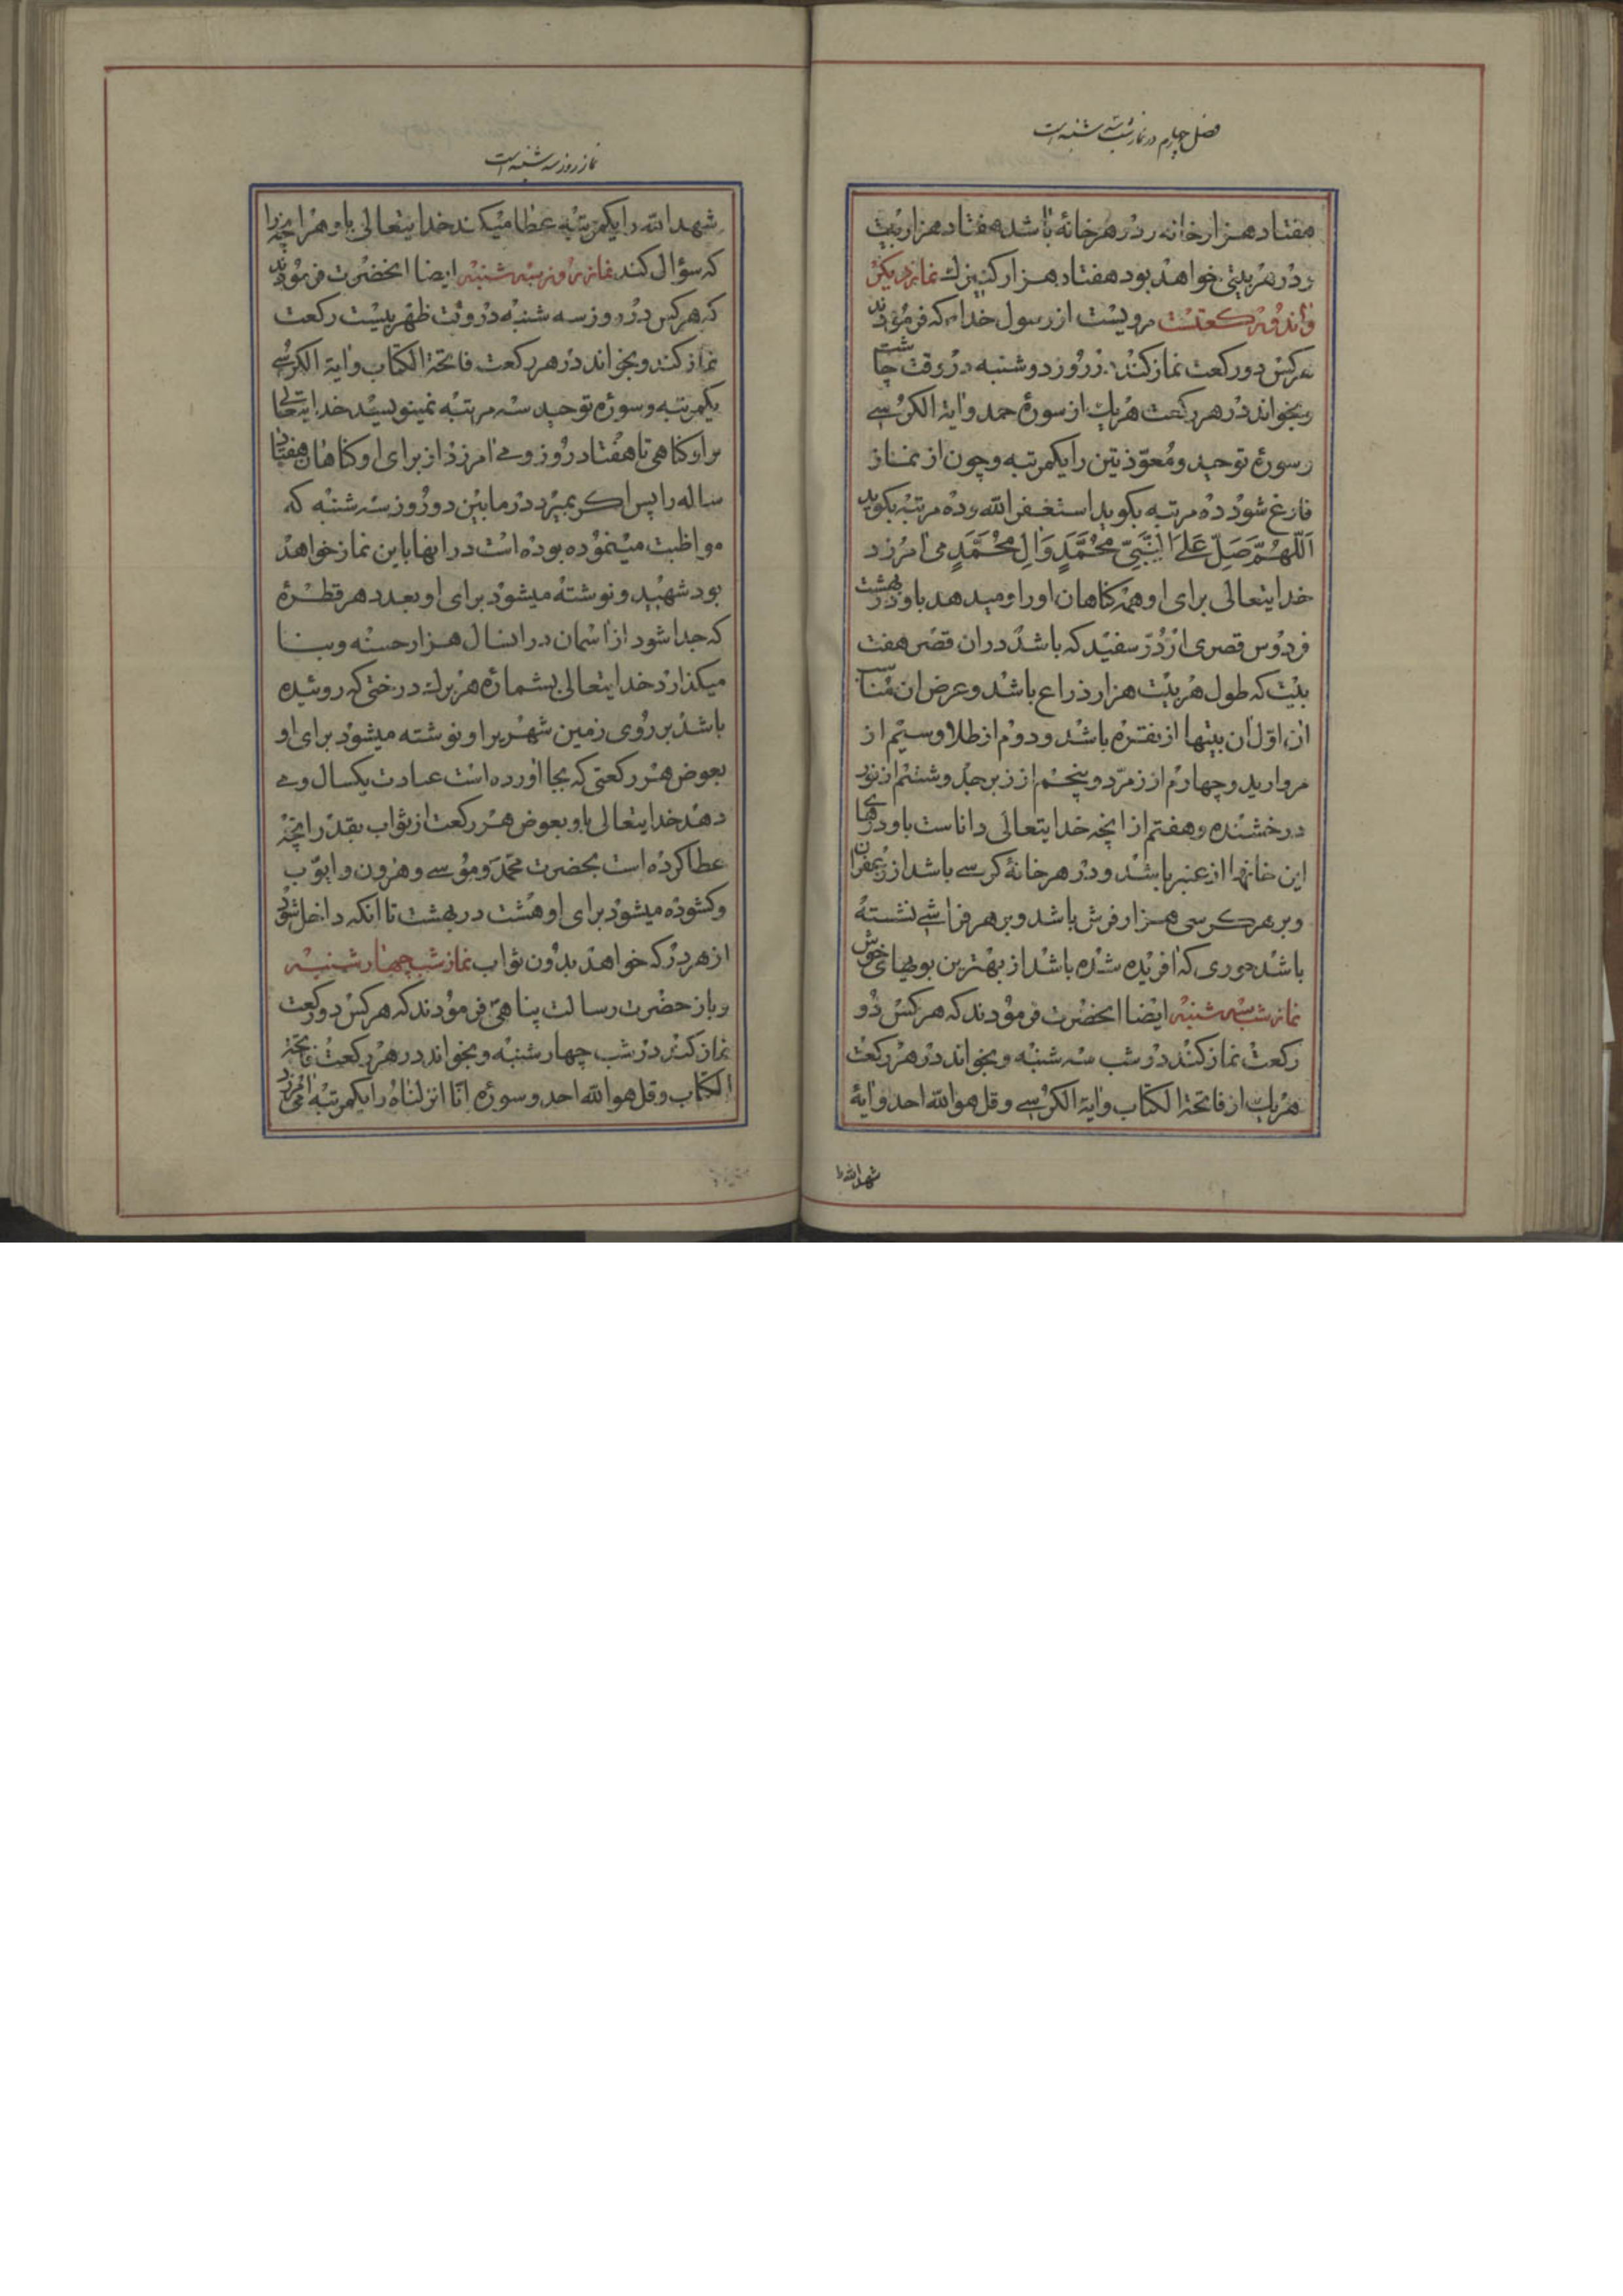 فصل چهارم در نماز شب سه شنبه است
هفتاد هزار خانه و در هر خانهٔ باشد هفتاد هزار بیت
و در هر بیتی خواهد بود هفتاد هزار کنیزک نماز دیکر
و آن دو رکعتست مرویست از رسول خدا که فرمودند
هرکس دو رکعت نماز کند در روز دوشنبه در وقت چاشت
و بخواند در هر رکعت هریک از سورهٔ حمد و آیة الکرسے
و سورهٔ توحید و معوّذتین را یکمرتبه و چون از نماز
فارغ شود ده مرتبه بکوید استغفر الله و ده مرتبه بکوید
اَللّهُمَّ صَلِّ عَلَی النَّبِیِّ مُحَمَّدٍ وَالِ مُحَمَّدٍ می امرزد
خدایتعالی برای او همه کناهان او را و میدهد باو در بهشت
فردوس قصری از دُرّ سفید که باشد در ان قصر هفت
بیت که طول هر بیت هزار ذراع باشد و عرض ان مناسب
ان اوّل ان بیتها از نقره باشد و دوم از طلا و سیم از
مروارید و چهارم از زمرّد و پنجم از زبرجد و ششم از نور
درخشنده و هفتم از انچه خدایتعالی داناست باو درهای
این خانها از عنبر باشد و در هر خانهٔ کرسے باشد از زعفران
و بر هر کرسی هزار فرش باشد و بر هر فراشے نشسته
باشد حوری که افریده شده باشد از بهترین بویهای خوش
نماز شب سه شنبه ایضا انحضرت فرمودند که هرکس دو
رکعت نماز کند در شب سه شنبه و بخواند در هر رکعت
هریک از فاتحة الکتاب و آیة الکرسے و قل هو الله احد و ایهٔ
شهد الله را
نماز روز سه شنبه است
شهد الله را یکمرتبه عطا میکند خدایتعالی باو هر انچه را
که سؤال کند نماز روز سه شنبه ایضا انحضرت فرمودند
که هرکس در روز سه شنبه در وقت ظهر بیست رکعت
نماز کند و بخواند در هر رکعت فاتحة الکتاب و ایة الکرسے
یکمرتبه و سورهٔ توحید سه مرتبه نمینویسد خدایتعالی
بر او کناهی تا هفتاد روز و مے امرزد از برای او کناهان هفتاد
ساله را پس اکر بمیرد در مابین دو روز سه شنبه که
مواظبت مینموده بوده است در انها باین نماز خواهد
بود شهید و نوشته میشود برای او بعدد هر قطرهٔ
که جدا شود از اسمان در انسال هزار حسنه و بنا
میکذارد خدایتعالی بشمارهٔ هر برک درختی که روئیده
باشد بر روی زمین شهر بر او نوشته میشود برای او
بعوض هر رکعتی که بجا اورده است عبادت یکسال و مے
دهد خدایتعالی باو بعوض هر رکعت از ثواب بقدر انچه
عطا کرده است بحضرت محمّد و موسے و هرون و ایّوب
و کشوده میشود برای او هشت در بهشت تا انکه داخل شود
از هر در که خواهد بدون ثواب نماز شب چهارشنبه
و باز حضرت رسالت پناهی فرمودند که هرکس دو رکعت
نماز کند در شب چهارشنبه و بخواند در هر رکعت فاتحة
الکتاب و قل هو الله احد و سورهٔ انّا انزلناه را یکمرتبه امرزد